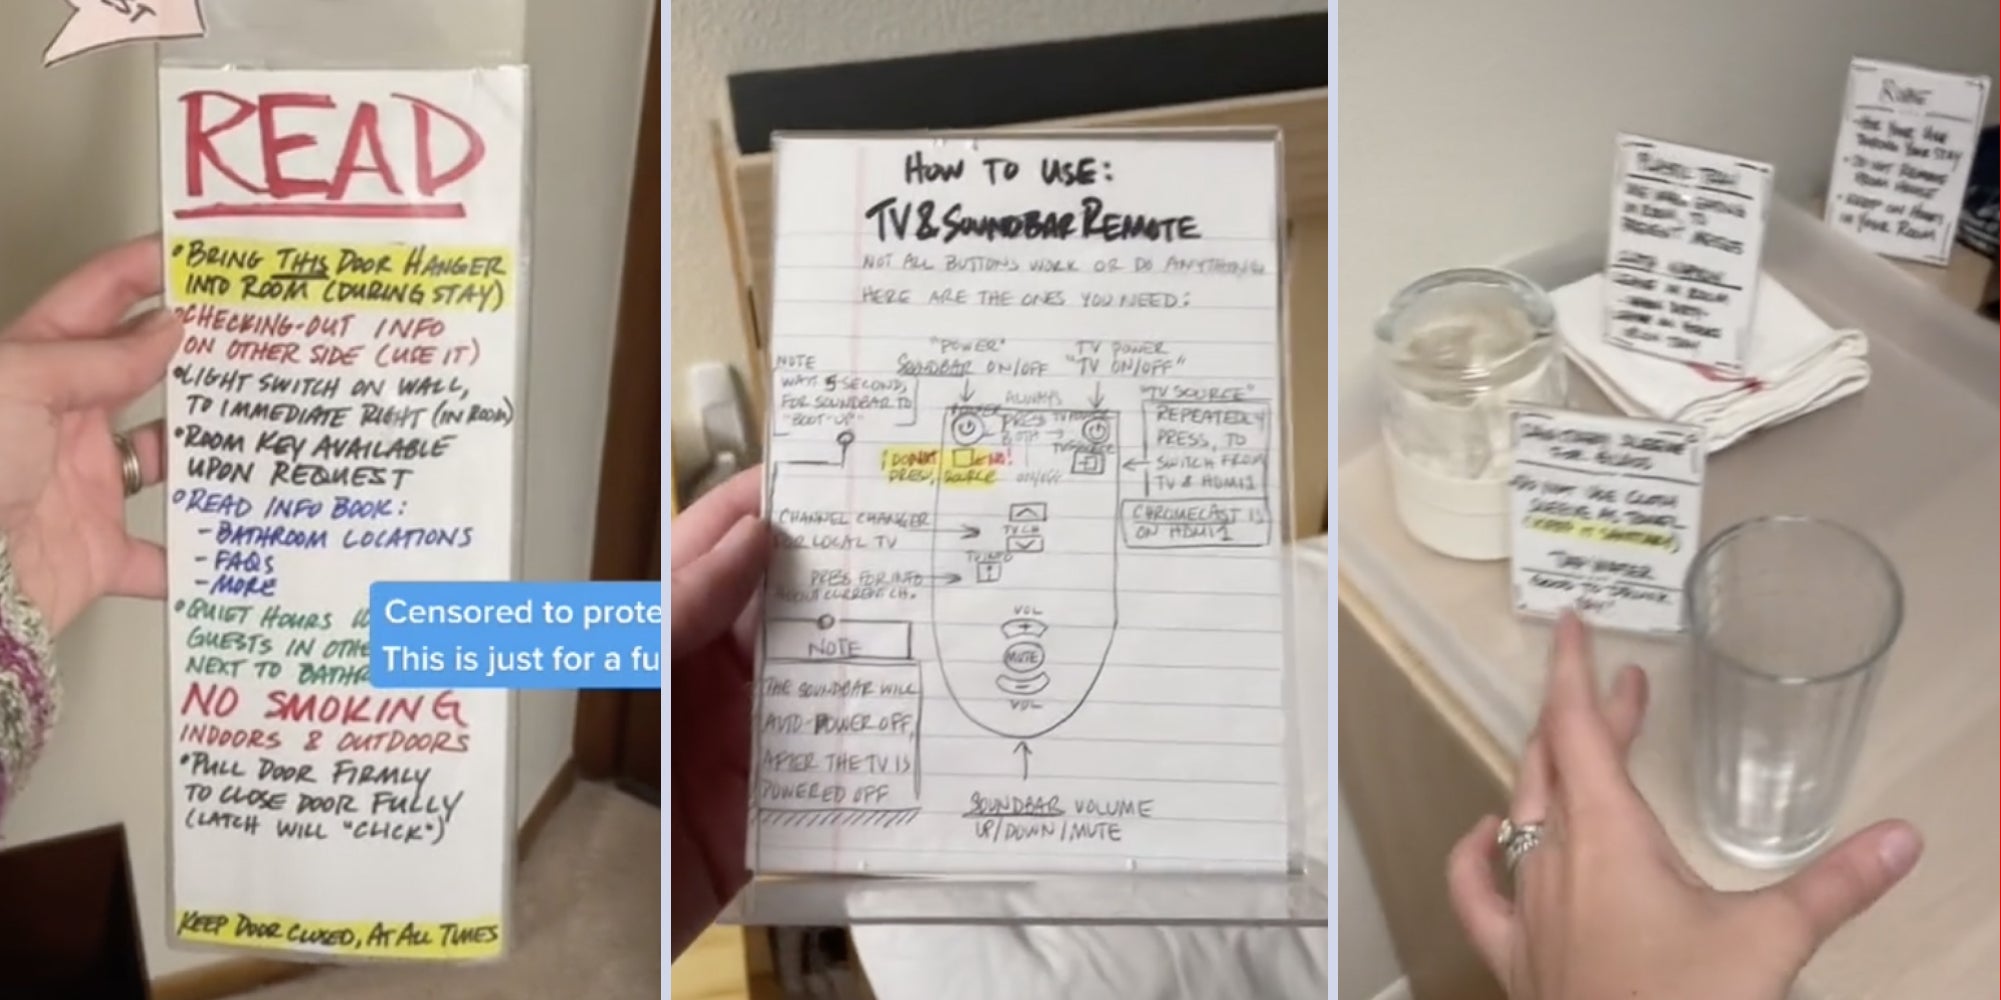 READ
• BRING THIS DOOR HANGER
INTO ROOM (DURING STAY)
• CHECKING-OUT INFO
ON OTHER SIDE (USE IT)
• LIGHT SWITCH ON WALL,
TO IMMEDIATE RIGHT (IN ROOM)
• ROOM KEY AVAILABLE
UPON REQUEST
• READ INFO BOOK:
- BATHROOM LOCATIONS
- FAQS
- MORE
• QUIET HOURS
GUESTS IN
NEXT TO
Censored to prote
This is just for a fu
NO SMOKING
INDOORS & OUTDOORS
• PULL DOOR FIRMLY
TO CLOSE DOOR FULLY
(LATCH WILL "CLICK")
KEEP DOOR CLOSED, AT ALL TIMES
HOW TO USE:
TV & SOUNDBAR REMOTE
NOT ALL BUTTONS WORK OR DO ANYTHING
HERE ARE THE ONES YOU NEED:
"POWER"
SOUNDBAR ON/OFF
TV POWER
"TV ON/OFF"
NOTE
WAIT 5 SECONDS,
FOR SOUNDBAR TO
"BOOT-UP"
POWER
ALWAYS
PRESS
BOTH
ON/OFF
TV SOURCE
! DO NOT
PRESS,
SOURCE
"TV SOURCE"
REPEATEDLY
PRESS, TO
SWITCH FROM
TV & HDMI1
CHROMECAST IS
ON HDMI1
CHANNEL CHANGER
FOR LOCAL TV
TV CH
TV INFO
PRESS FOR INFO
ABOUT CURRENT CH.
VOL
+
MUTE
-
VOL
NOTE
THE SOUNDBAR WILL
AUTO-POWER OFF,
AFTER THE TV IS
POWERED OFF
SOUNDBAR VOLUME
UP/DOWN/MUTE
ROBE
- FOR YOUR USE
THROUGH YOUR STAY
• DO NOT REMOVE
FROM HOUSE
IN YOUR ROOM
FOR GLASS
DO NOT USE CLOTH
SLEEVE AS TOWEL
(KEEP IT SANITARY)
TAP WATER